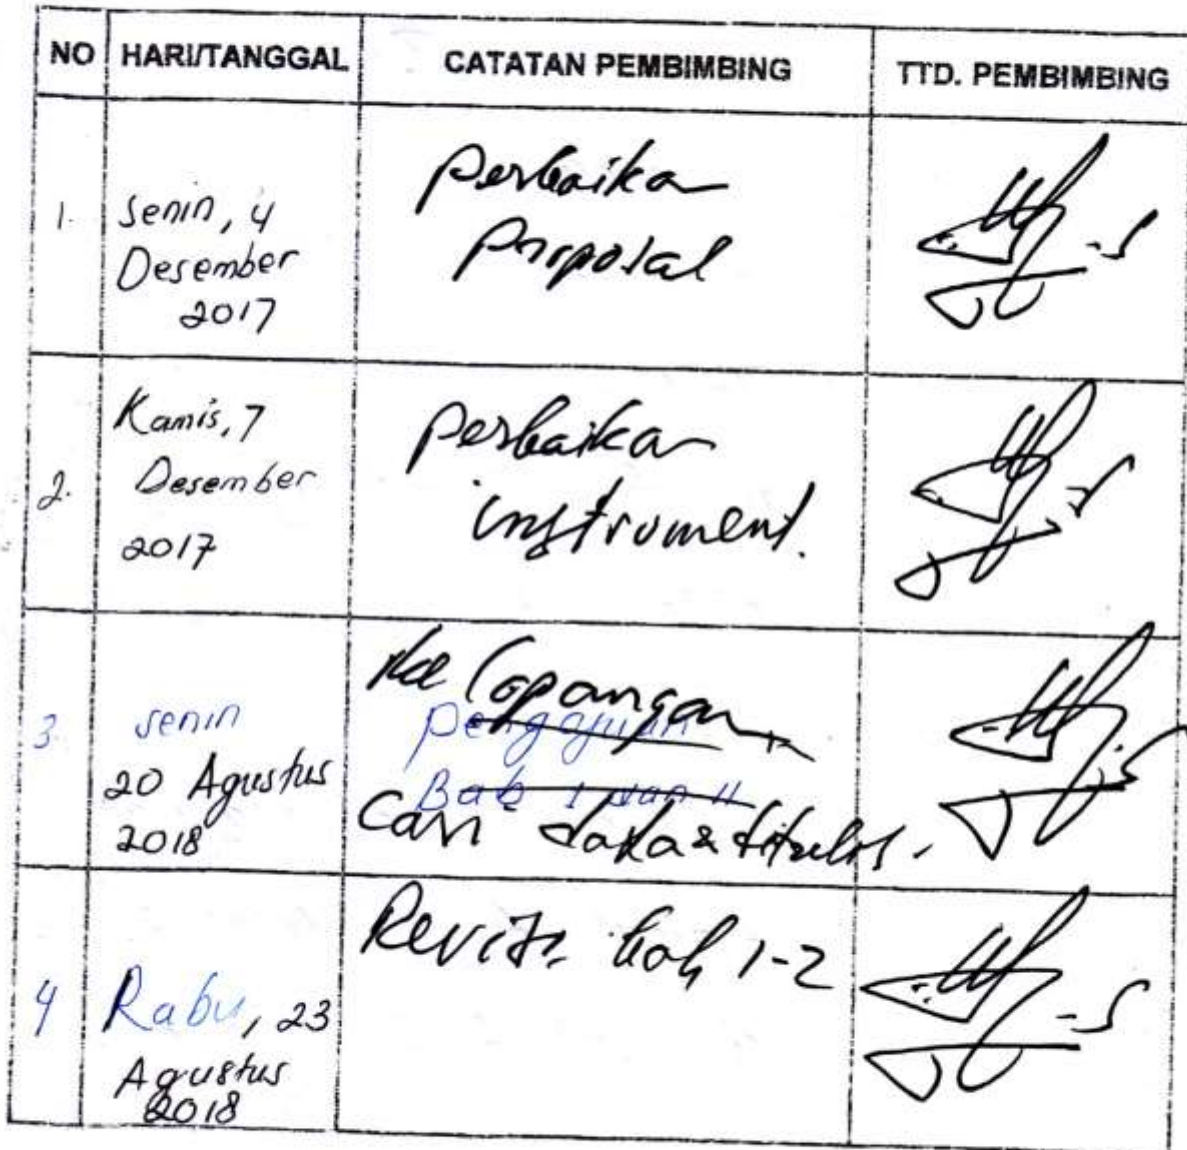 NO HARI/TANGGAL CATATAN PEMBIMBING TTD. PEMBIMBING
1. Senin, 4
Desember
2017
perbaikan
proposal
2. Kamis, 7
Desember
2017
perbaikan
instrument.
3. Senin
20 Agustus
2018
Ke lapangan
Pengajuan
Bab I dan II
Cari data &
4 Rabu, 23
Agustus
2018
Revisi bab 1-2